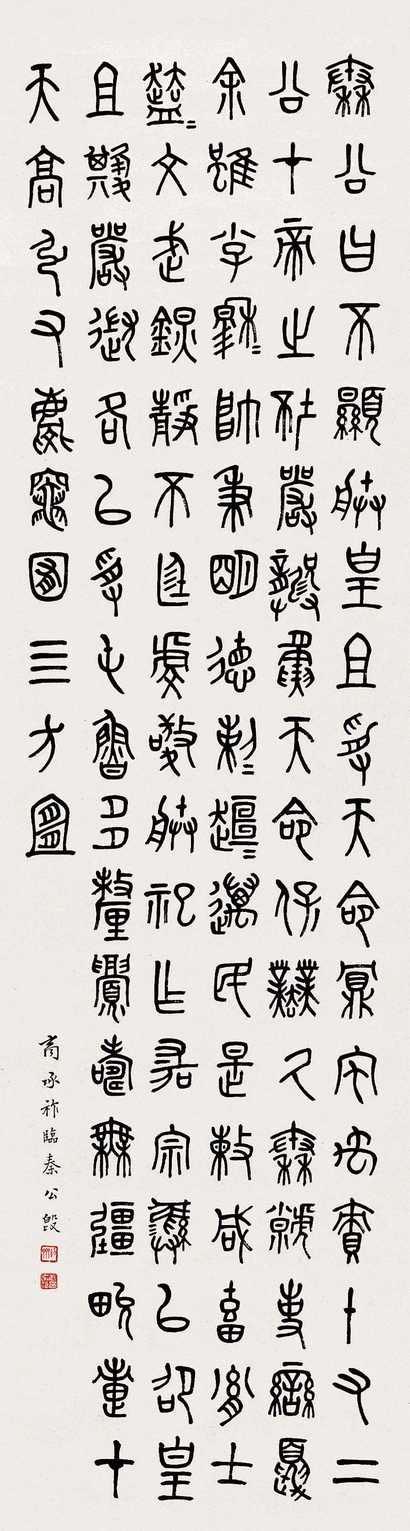 秦公曰不顯朕皇且受天命鼏宅禹賷十又二
公才帝之坯嚴龏夤天命保業氒秦虩事蠻夏
余雖小子穆=帥秉明德剌=趄=邁民是敕咸畜胤士
盍=文武鋹靜不廷虔敬朕祀乍㖼宗彝以卲皇
且其嚴各以受屯魯多釐眉壽無疆畯疐才
天高引又慶竈囿三方宜
商承祚臨秦公𣪘